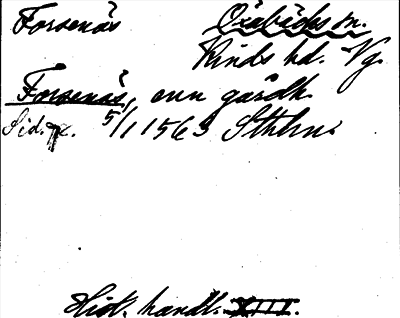 Forsenäs Oxabäcks sn.
Kinds hd. Vg.
Forsenäs, enn gårdh.
5/1 1563 Sthlm.
Hist. handl. XIII.